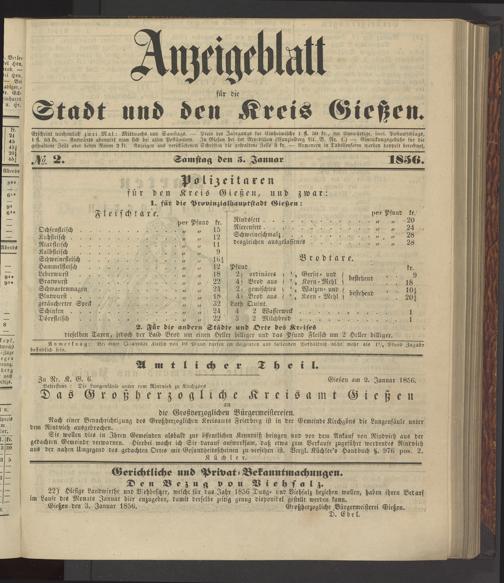 Anzeigeblatt
für die
Stadt und den Kreis Gießen.
Erscheint wöchentlich zwei Mal: Mittwochs und Samstags. — Preis der Jahrgangs für Einheimische 1 fl. 30 kr., für Auswärtige, incl. Postaufschlag,
№ 2.
Samstag den 5. Januar
1856.
Polizeitaxen
für den Kreis Gießen, und zwar:
1. für die Provinzialhauptstadt Gießen:
Fleischtaxe.
per Pfund kr.
Ochsenfleisch 15
Kuhfleisch 12
Rindfleisch 11
Kalbfleisch 9
Schweinefleisch 16½
Hammelfleisch 12
Leberwurst 18
Bratwurst 22
Schwartenmagen 24
Blutwurst 18
geräucherter Speck 32
Schinken 24
Dörrfleisch 22
per Pfund kr.
Rindsfett 20
Nierenfett 24
Schweineschmalz 28
desgleichen ausgelassenes 28
Brodtaxe.
Pfund kr.
2 ordinäres Brod aus Gerste- und Korn-Mehl bestehend 9
4 18
2 gemischtes Brod aus Waizen- und Korn-Mehl bestehend 10½
4 20½
Loth Quint.
4 2 Wasserweck 1
4 2 Milchbrod 1
2. Für die andern Städte und Orte des Kreises
dieselben Taxen, jedoch der Laib Brod um einen Heller billiger und das Pfund Fleisch um 2 Heller billiger.
Amtlicher Theil.
Zu Nr. K. G. 6.
Gießen am 2. Januar 1856.
Betreffend: Die Lungenfäule unter dem Rindvieh zu Kirchgöns.
Das Großherzogliche Kreisamt Gießen
an
die Großherzoglichen Bürgermeistereien.
Nach einer Benachrichtigung des Großherzoglichen Kreisamts Friedberg ist in der Gemeinde Kirchgöns die Lungenfäule unter
dem Rindvieh ausgebrochen.
Sie wollen dies in Ihren Gemeinden alsbald zur öffentlichen Kenntniß bringen und vor dem Ankauf von Rindvieh aus der
gedachten Gemeinde verwarnen. Hierbei mache ich Sie darauf aufmerksam, daß etwa zum Verkaufe zugeführt werdendes Rindvieh
aus der nahen Umgegend des gedachten Ortes mit Gesundheitsscheinen zu versehen ist. Vergl. Küchler's Handbuch §. 976 pos. 2.
Küchler.
Gerichtliche und Privat-Bekanntmachungen.
Den Bezug von Viehsalz.
22) Hiesige Landwirthe und Viehbesitzer, welche für das Jahr 1856 Dung- und Viehsalz beziehen wollen, haben ihren Bedarf
im Laufe des Monats Januar hier anzugeben, damit derselbe zeitig genug disponibel gestellt werden kann.
Gießen den 3. Januar 1856.
Großherzogliche Bürgermeisterei Gießen.
D. Ebel.